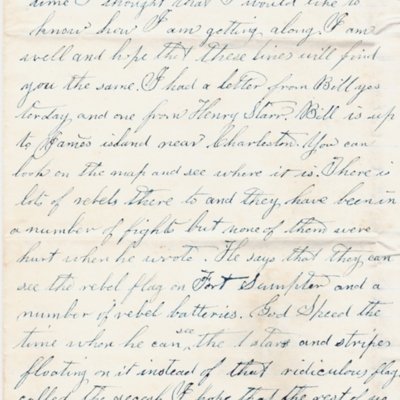 time I thought that I would like to
know how I am getting along. I am
well and hope that these line will find
you the same. I had a letter from Bill yes
terday, and one from Henry Starr. Bill is up
to James island near Charleston. You can
look on the map and see where it is. There is
lots of rebels there to and they have been in
a number of fights but none of them were
hurt when he wrote. He says that they can
see the rebel flag on Fort Sumpter and a
number of rebel batteries. God Speed the
time when he can see the stars and stripes
floating on it instead of that ridiculous flag
called the secesh. I hope that the rest of us